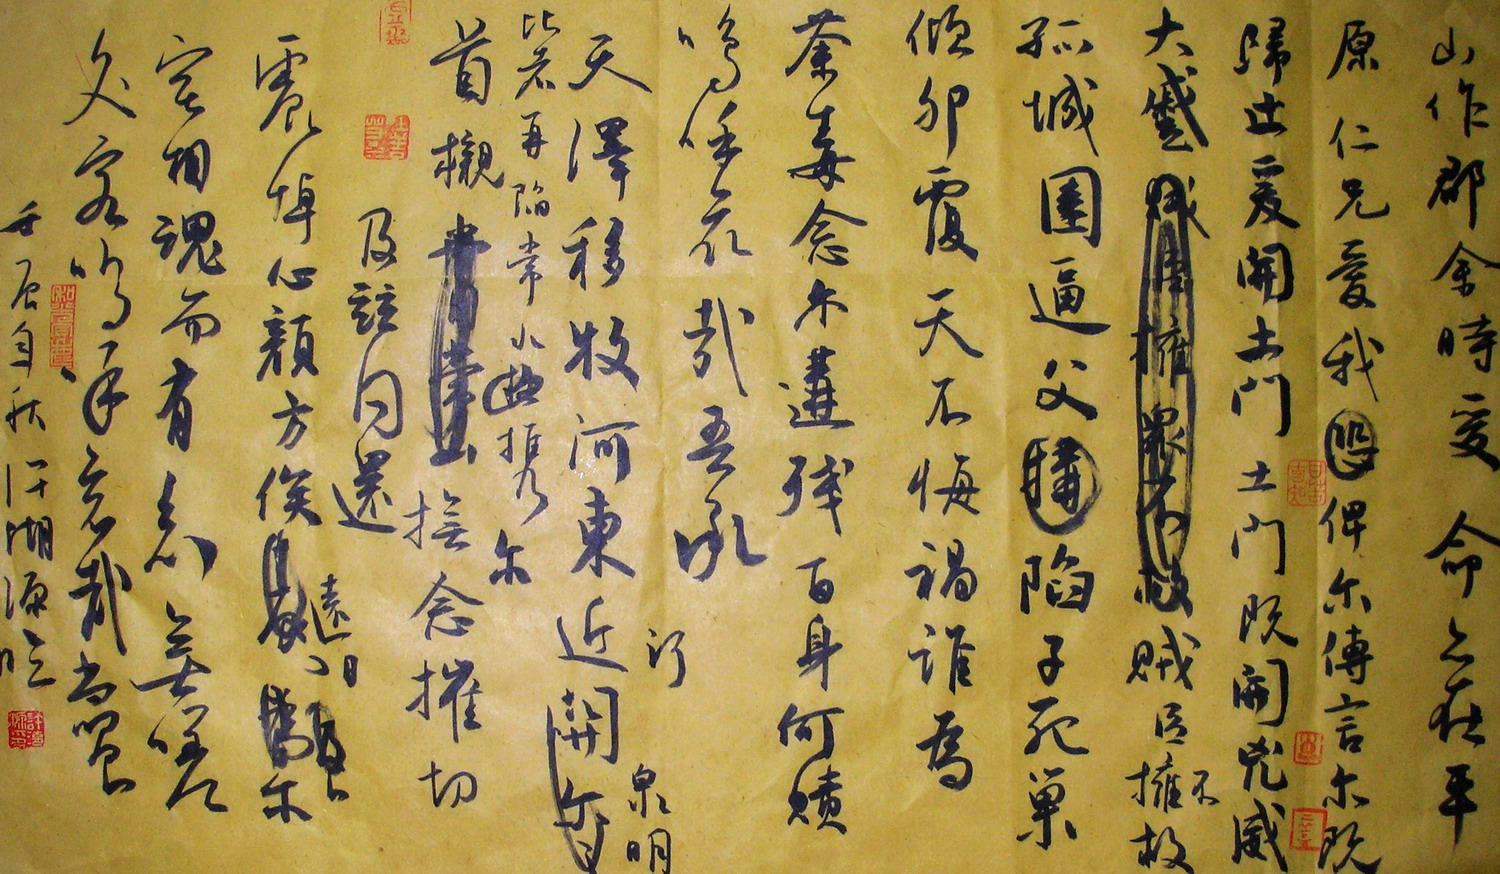 山作郡余時受命亦在平
原仁兄愛我恐俾尔傳言尔既
歸止爰開土門土門既開兇威
大蹙賊臣擁眾不救賊臣不擁救
孤城圍逼父陷子死巢
傾卵覆天不悔禍誰為
荼毒念尔遘殘百身何贖
嗚呼哀哉吾承
天澤移牧河東近關
泉明
比者再陷常山携
尔
首櫬撫念摧切
及茲同還
震悼心顏方俟尔
遠日卜
宅相魂而有知無嗟
久客嗚呼哀哉尚饗